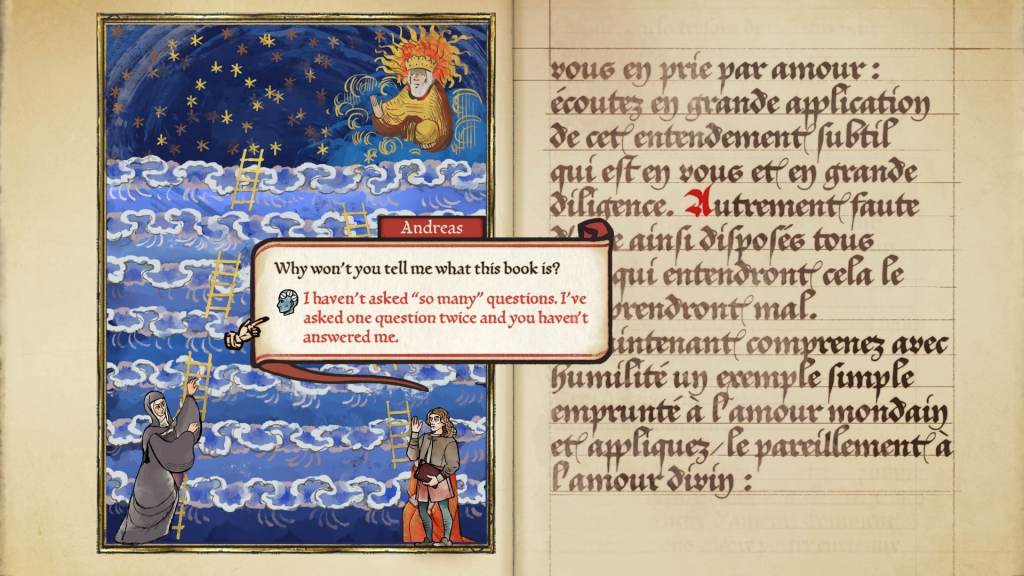 Andreas
Why won't you tell me what this book is?
I haven't asked “so many” questions. I've
asked one question twice and you haven't
answered me.
vous en prie par amour :
écoutez en grande application
de cet entendement subtil
qui est en vous et en grande
diligence. Autrement faute
e ainsi disposés tous
qui entendront cela le
prendront mal.
intenant comprenez avec
humilité un exemple simple
emprunté à l'amour mondain
et appliquez/le pareillement à
l'amour divin :